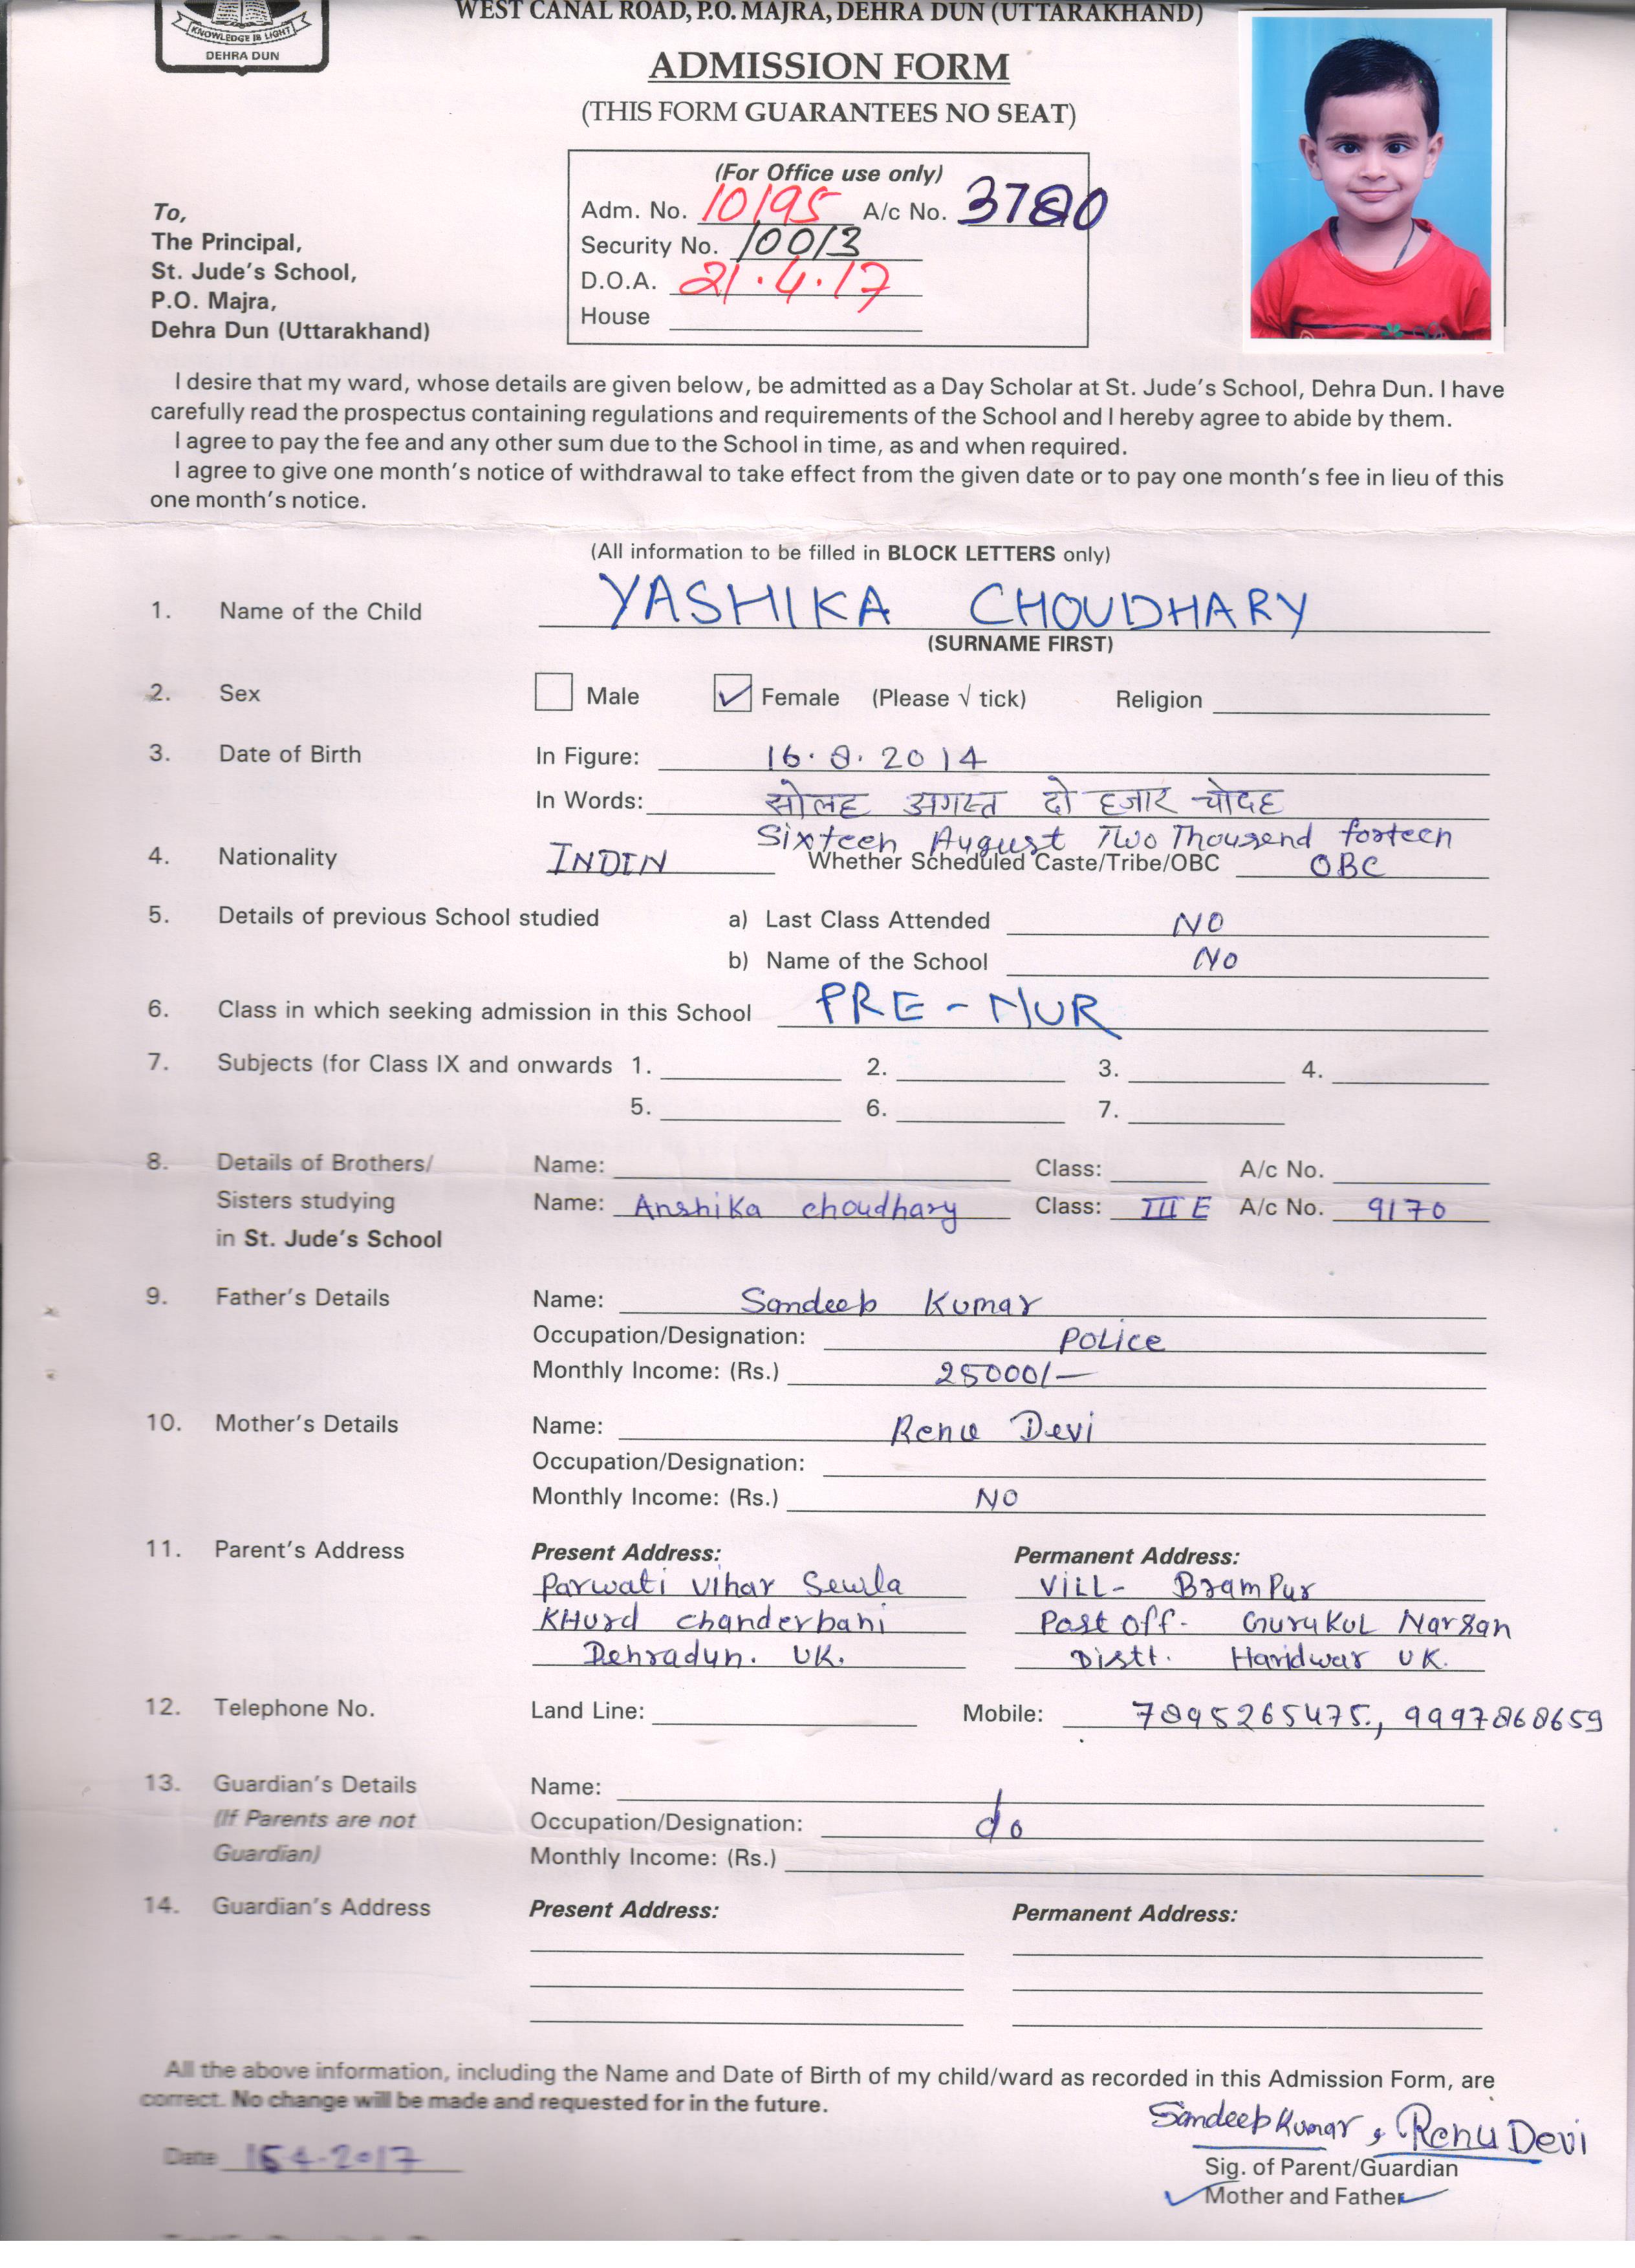 WEST CANAL ROAD, P.O. MAJRA, DEHRA DUN (UTTARAKHAND)
KNOWLEDGE IS LIGHT
DEHRA DUN
ADMISSION FORM
(THIS FORM GUARANTEES NO SEAT)
(For Office use only)
Adm. No. 10195 A/c No. 3780
Security No. 10013
D.O.A. 21.4.17
House
To,
The Principal,
St. Jude's School,
P.O. Majra,
Dehra Dun (Uttarakhand)
I desire that my ward, whose details are given below, be admitted as a Day Scholar at St. Jude's School, Dehra Dun. I have
carefully read the prospectus containing regulations and requirements of the School and I hereby agree to abide by them.
I agree to pay the fee and any other sum due to the School in time, as and when required.
I agree to give one month's notice of withdrawal to take effect from the given date or to pay one month's fee in lieu of this
one month's notice.
(All information to be filled in BLOCK LETTERS only)
1. Name of the Child YASHIKA CHOUDHARY
(SURNAME FIRST)
2. Sex Male ✓ Female (Please √ tick) Religion
3. Date of Birth In Figure: 16.8.2014
In Words: सोलह अगस्त दो हजार चोदह
Sixteen August Two Thousend forteen
4. Nationality INDIN Whether Scheduled Caste/Tribe/OBC OBC
5. Details of previous School studied a) Last Class Attended NO
b) Name of the School NO
6. Class in which seeking admission in this School PRE-NUR
7. Subjects (for Class IX and onwards 1. 2. 3. 4.
5. 6. 7.
8. Details of Brothers/ Name: Class: A/c No.
Sisters studying Name: Anshika choudhary Class: III E A/c No. 9170
in St. Jude's School
9. Father's Details Name: Sandeep Kumar
Occupation/Designation: POLICE
Monthly Income: (Rs.) 25000/-
10. Mother's Details Name: Renu Devi
Occupation/Designation:
Monthly Income: (Rs.) NO
11. Parent's Address Present Address: Permanent Address:
Parwati vihar Sewla VILL- BramPur
KHurd chanderbani Post off- GuruKul Narsan
Dehradun. UK. Distt. Haridwar UK.
12. Telephone No. Land Line: Mobile: 7895265475., 9997868659
13. Guardian's Details Name:
(If Parents are not Occupation/Designation: do
Guardian) Monthly Income: (Rs.)
14. Guardian's Address Present Address: Permanent Address:
All the above information, including the Name and Date of Birth of my child/ward as recorded in this Admission Form, are
correct. No change will be made and requested for in the future.
Sandeep Kumar, Renu Devi
Date 16-4-2017
Sig. of Parent/Guardian
Mother and Father